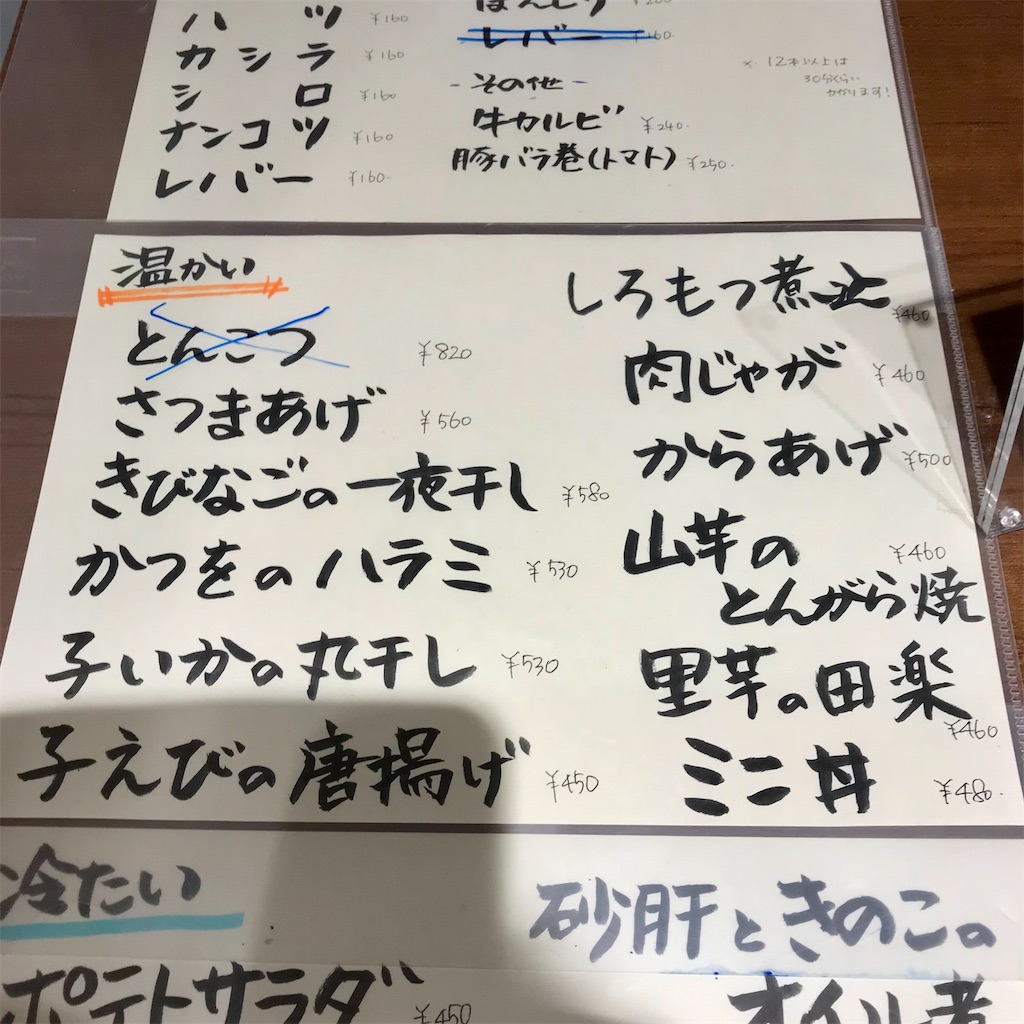 ハツ ¥160
カシラ ¥160
シロ ¥160
ナンコツ ¥160
レバー ¥160
ぼんじり ¥200
レバー ¥160
-その他-
牛カルビ ¥240.
豚バラ巻(トマト) ¥250.
※ 12本以上は
30分くらい
かかります!
温かい
とんこつ ¥820
さつまあげ ¥560
きびなごの一夜干し ¥580
かつをのハラミ ¥530
子いかの丸干し ¥530
子えびの唐揚げ ¥450
しろもつ煮込 ¥460
肉じゃが ¥460
からあげ ¥500
山芋の ¥460
とんがら焼
里芋の田楽 ¥460
ミニ丼 ¥480.
冷たい
ポテトサラダ ¥450
砂肝ときのこの
オイル煮